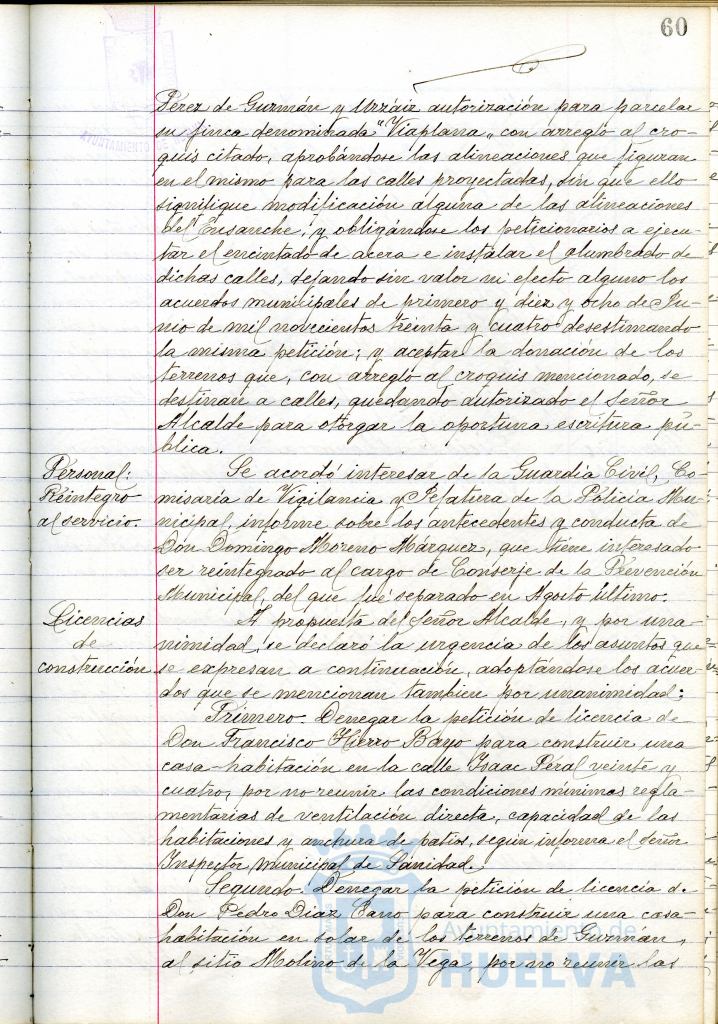 60
Pérez de Guzmán y Urzáiz autorización para parcelar
su finca denominada "Viaplana", con arreglo al cro-
quis citado, aprobándose las alineaciones que figuran
en el mismo para las calles proyectadas, sin que ello
signifique modificación alguna de las alineaciones
del Ensanche; y obligándose los peticionarios a ejecu-
tar el encintado de acera e instalar el alumbrado de
dichas calles, dejando sin valor ni efecto alguno los
acuerdos municipales de primero y diez y ocho de Ju-
nio de mil novecientos treinta y cuatro desestimando
la misma petición; y aceptar la donación de los
terrenos que, con arreglo al croquis mencionado, se
destinan a calles, quedando autorizado el Señor
Alcalde para otorgar la oportuna escritura pú-
blica.
Personal:
Reintegro
al servicio.
Se acordó interesar de la Guardia Civil, Co-
misaría de Vigilancia y Jefatura de la Policía Mu-
nicipal, informe sobre los antecedentes y conducta de
Don Domingo Moreno Márquez, que tiene interesado
ser reintegrado al cargo de Conserje de la Prevención
Municipal, del que fué separado en Agosto último.
Licencias
de
construcción
A propuesta del Señor Alcalde, y por una-
nimidad, se declaró la urgencia de los asuntos que
se expresan a continuación, adoptándose los acuer-
dos que se mencionan tambien por unanimidad:
Primero. Denegar la petición de licencia de
Don Francisco Hierro Bayo para construir una
casa-habitación en la calle Isaac Peral veinte y
cuatro, por no reunir las condiciones mínimas regla-
mentarias de ventilación directa, capacidad de las
habitaciones y anchura de patios, según informa el Señor
Inspector Municipal de Sanidad.
Segundo. Denegar la petición de licencia de
Don Pedro Diaz Cano para construir una casa-
habitación en solar de los terrenos de Guzmán,
al sitio Molino de la Vega, por no reunir las
Ayuntamiento de
HUELVA